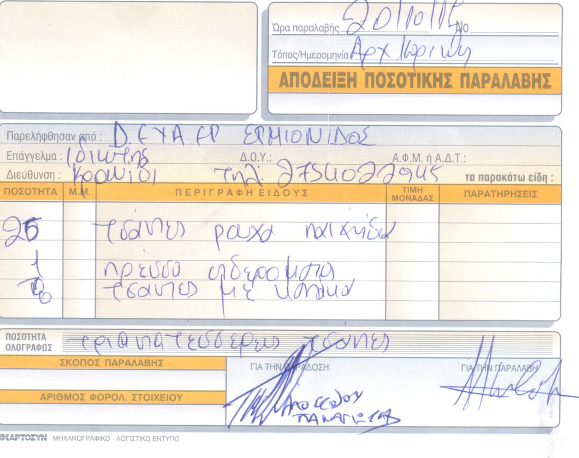 Ώρα παραλαβής 20/10/15 Νο
Τόπος/Ημερομηνία Αρχ. Κορινθ
ΑΠΟΔΕΙΞΗ ΠΟΣΟΤΙΚΗΣ ΠΑΡΑΛΑΒΗΣ
Παρελήφθησαν από : ΕΡΜΙΟΝΙΔΟΣ
Επάγγελμα : Ιδιώτης Δ.Ο.Υ.: Α.Φ.Μ. ή Α.Δ.Τ.:
Διεύθυνση : Κρανίδι Τηλ: 2754022948 τα παρακάτω είδη :
ΠΟΣΟΤΗΤΑ Μ.Μ. ΠΕΡΙΓΡΑΦΗ ΕΙΔΟΥΣ ΤΙΜΗ ΜΟΝΑΔΑΣ ΠΑΡΑΤΗΡΗΣΕΙΣ
25 τσάντες ρούχα παιχνίδια
1 πρέσσα σιδερώματος
8 τσάντες με
ΠΟΣΟΤΗΤΑ ΟΛΟΓΡΑΦΩΣ τριαντατέσσερες τσάντες
ΣΚΟΠΟΣ ΠΑΡΑΛΑΒΗΣ ΓΙΑ ΤΗΝ ΠΑΡΑΔΟΣΗ ΓΙΑ ΤΗΝ ΠΑΡΑΛΑΒΗ
ΑΡΙΘΜΟΣ ΦΟΡΟΛ. ΣΤΟΙΧΕΙΟΥ
ΚΑΡΤΟΣΥΝ ΜΗΧΑΝΟΓΡΑΦΙΚΟ - ΛΟΓΙΣΤΙΚΟ ΕΝΤΥΠΟ